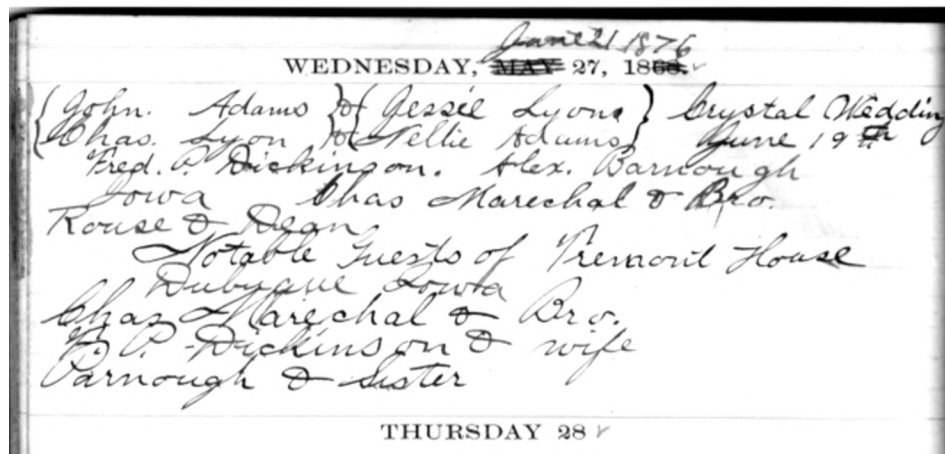 June 21 1876
WEDNESDAY, MAY 27, 1868.
{John. Adams} & {Jessie Lyons} Crystal Wedding
{Chas. Lyon} & {Nellie Adams} June 19th
Fred. P. Dickinson. Alex. Barnough
Iowa Chas Marechal & Bro.
Rouse & Dean
Notable Guests of Tremont House
Dubuque Iowa
Chas Marechal & Bro.
F. P. Dickinson & wife
Barnough & Sister
THURSDAY 28